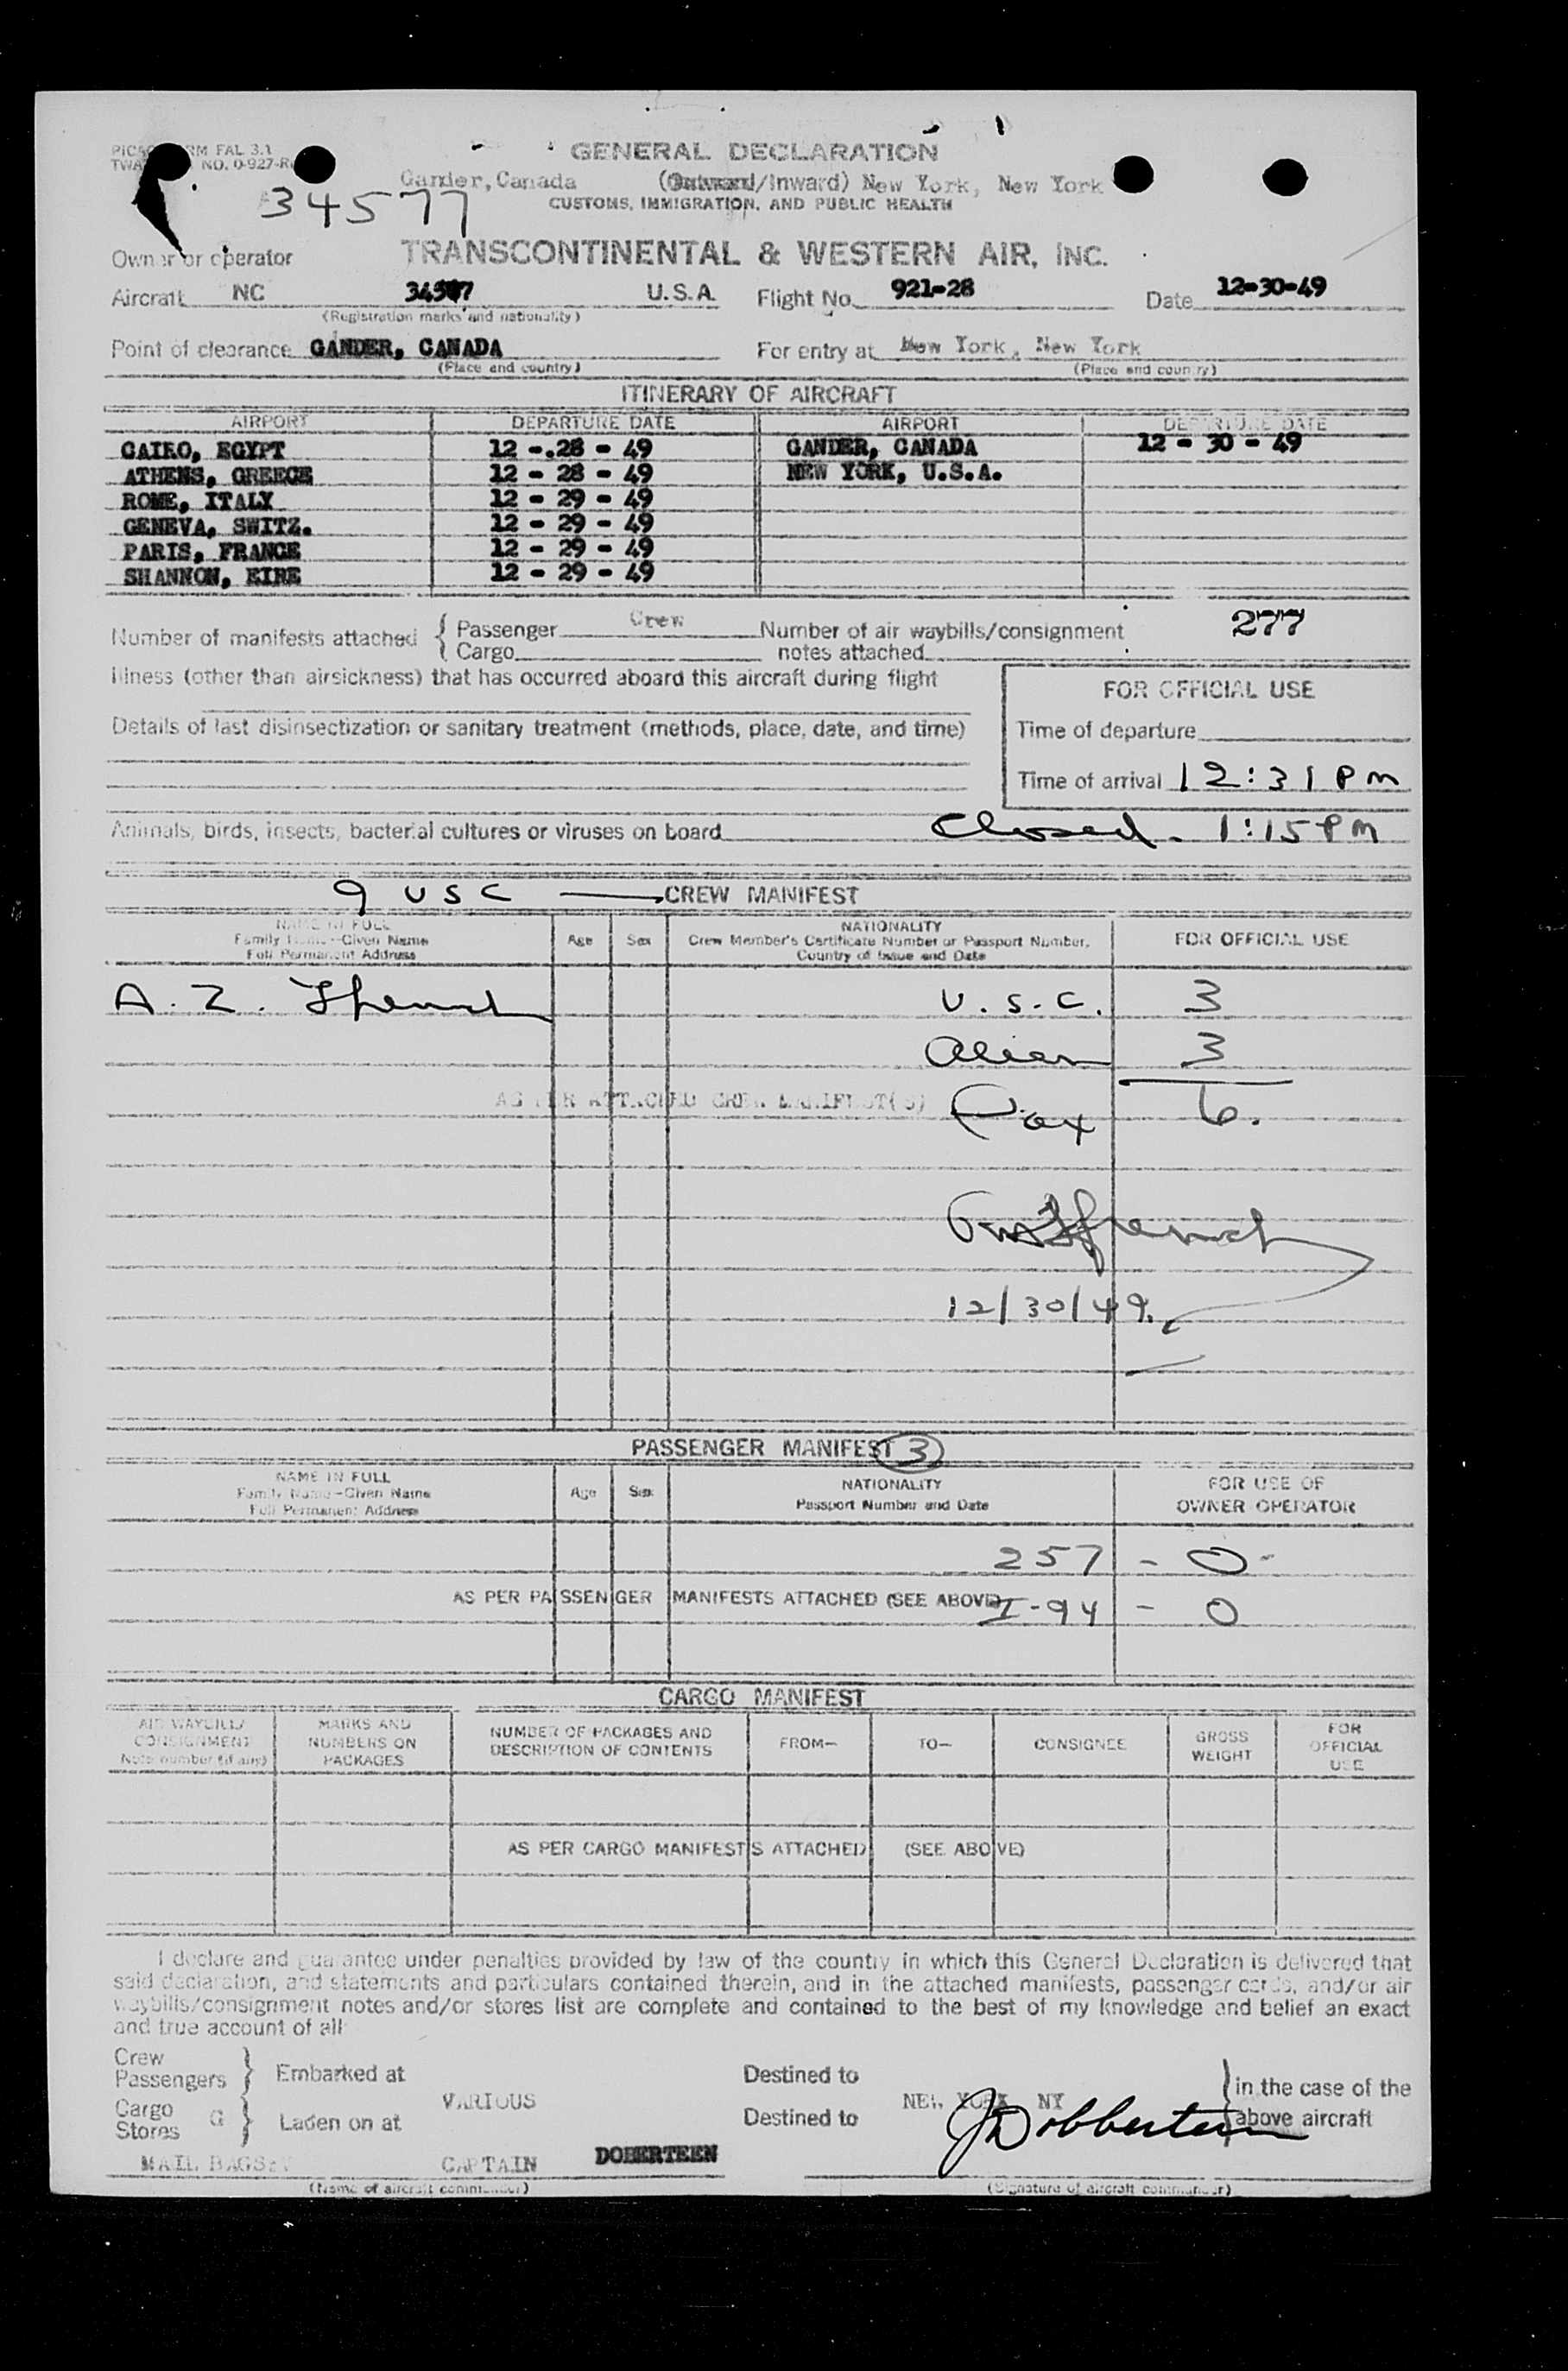 GENERAL DECLARATION
Gander, Canada (Outward/Inward) New York, New York
34577
CUSTOMS, IMMIGRATION, AND PUBLIC HEALTH
Owner or operator TRANSCONTINENTAL & WESTERN AIR, INC.
Aircraft NC 34577 U.S.A. Flight No. 921-28 Date 12-30-49
(Registration marks and nationality)
Point of clearance GANDER, CANADA For entry at New York, New York
(Place and country) (Place and country)
ITINERARY OF AIRCRAFT
AIRPORT DEPARTURE DATE AIRPORT DEPARTURE DATE
CAIRO, EGYPT 12 - 28 - 49 GANDER, CANADA 12 - 30 - 49
ATHENS, GREECE 12 - 28 - 49 NEW YORK, U.S.A.
ROME, ITALY 12 - 29 - 49
GENEVA, SWITZ. 12 - 29 - 49
PARIS, FRANCE 12 - 29 - 49
SHANNON, EIRE 12 - 29 - 49
Number of manifests attached { Passenger Crew Number of air waybills/consignment 277
Cargo notes attached
Illness (other than airsickness) that has occurred aboard this aircraft during flight
FOR OFFICIAL USE
Details of last disinsectization or sanitary treatment (methods, place, date, and time)
Time of departure
Time of arrival 12:31 PM
Animals, birds, insects, bacterial cultures or viruses on board Closed - 1:15 PM
9 USC CREW MANIFEST
NAME IN FULL Age Sex NATIONALITY FOR OFFICIAL USE
Family Name-Given Name Crew Member's Certificate Number or Passport Number,
Full Permanent Address Country of Issue and Date
A. Z. U.S.C. 3
Alien 3
AS PER ATTACHED CREW MANIFEST(S) Pax 6.
12/30/49.
PASSENGER MANIFEST 3
NAME IN FULL Age Sex NATIONALITY FOR USE OF
Family Name-Given Name Passport Number and Date OWNER OPERATOR
Full Permanent Address
257 - 0 -
AS PER PASSENGER MANIFESTS ATTACHED (SEE ABOVE) I-94 - 0
CARGO MANIFEST
AIR WAYBILL/ CONSIGNMENT Note number (if any) MARKS AND NUMBERS ON PACKAGES NUMBER OF PACKAGES AND DESCRIPTION OF CONTENTS FROM— TO— CONSIGNEE GROSS WEIGHT FOR OFFICIAL USE
AS PER CARGO MANIFESTS ATTACHED (SEE ABOVE)
I declare and guarantee under penalties provided by law of the country in which this General Declaration is delivered that
said declaration, and statements and particulars contained therein, and in the attached manifests, passenger cards, and/or air
waybills/consignment notes and/or stores list are complete and contained to the best of my knowledge and belief an exact
and true account of all
Crew
Passengers } Embarked at Destined to } in the case of the
VARIOUS NEW YORK NY
Cargo
Stores G } Laden on at Destined to above aircraft
JDobberteen
MAIL BAGS CAPTAIN DOBERTEEN
(Name of aircraft commander) (Signature of aircraft commander)